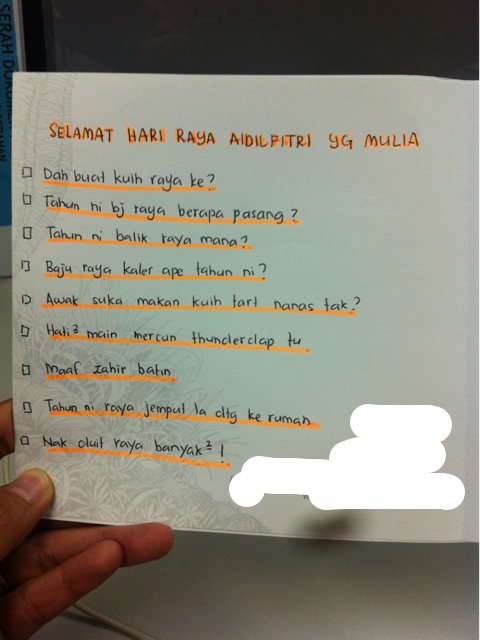 SERAH DOKUMEN
SELAMAT HARI RAYA AIDILFITRI YG MULIA
Dah buat kuih raya ke?
Tahun ni bj raya berapa pasang?
Tahun ni balik raya mana?
Baju raya kaler ape tahun ni?
Awak suka makan kuih tart nanas tak?
Hati² main mercun thunderclap tu
Maaf zahir batin
Tahun ni raya jemput la dtg ke rumah
Nak duit raya banyak² !